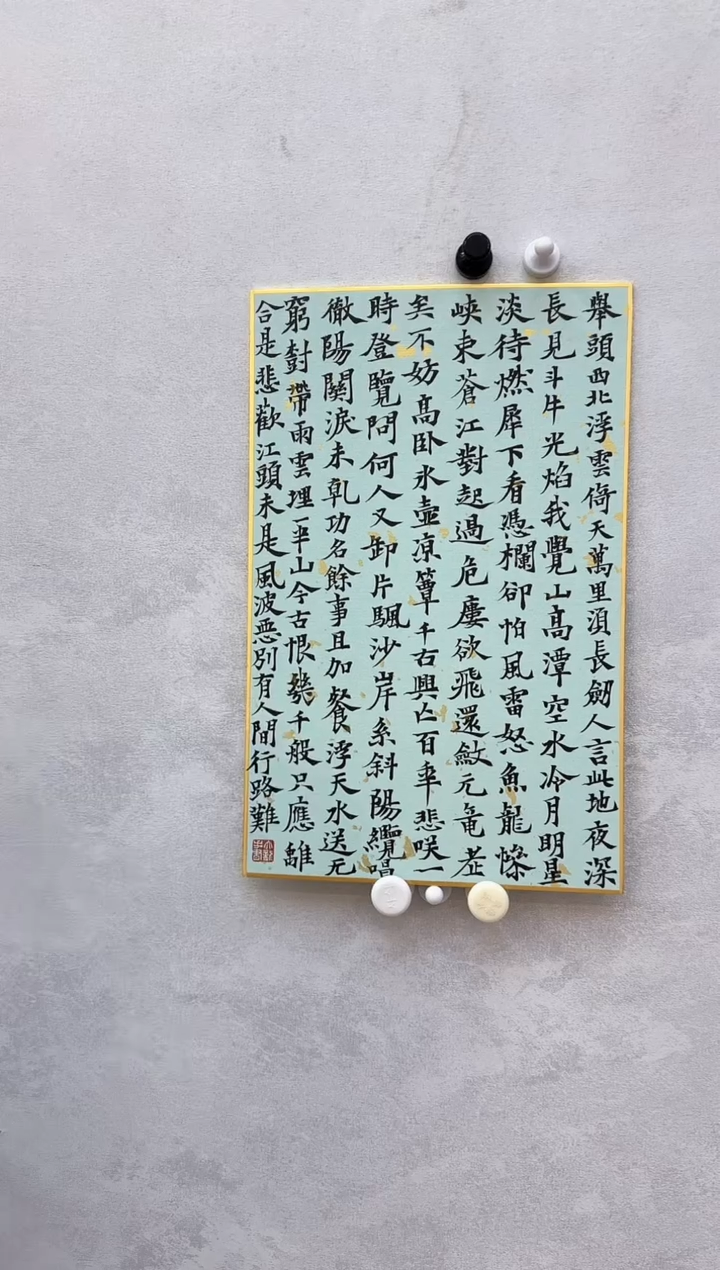 舉頭西北浮雲倚天萬里須長劒人言此地夜深
長見斗牛光焰我覺山高潭空水冷月明星
淡待燃犀下看憑欄卻怕風雷怒魚龍慘
峽束蒼江對起過危廔欲飛還斂元竜老
矣不妨高卧氷壺凉簟千古興亡百年悲咲一
時登覽問何人又卸片颿沙岸系斜陽纜唱
徹陽關淚未乹功名餘事且加餐浮天水送无
窮尌帶雨雲埋一半山今古恨幾千般只應離
合是悲歡江頭未是風波惡別有人間行路難